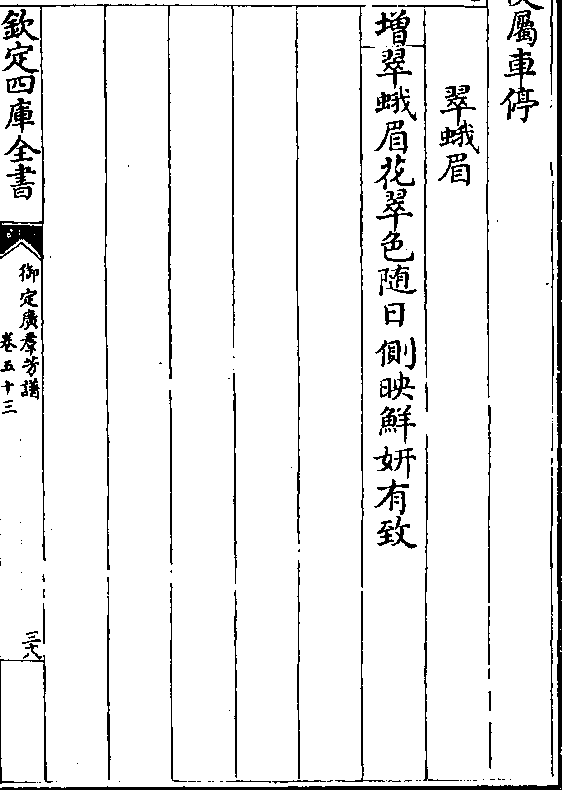 屬車停
翠蛾眉
增翠蛾眉花翠色随日側映鮮妍有致
欽定四庫全書
御定廣羣芳譜
卷五十三
三八